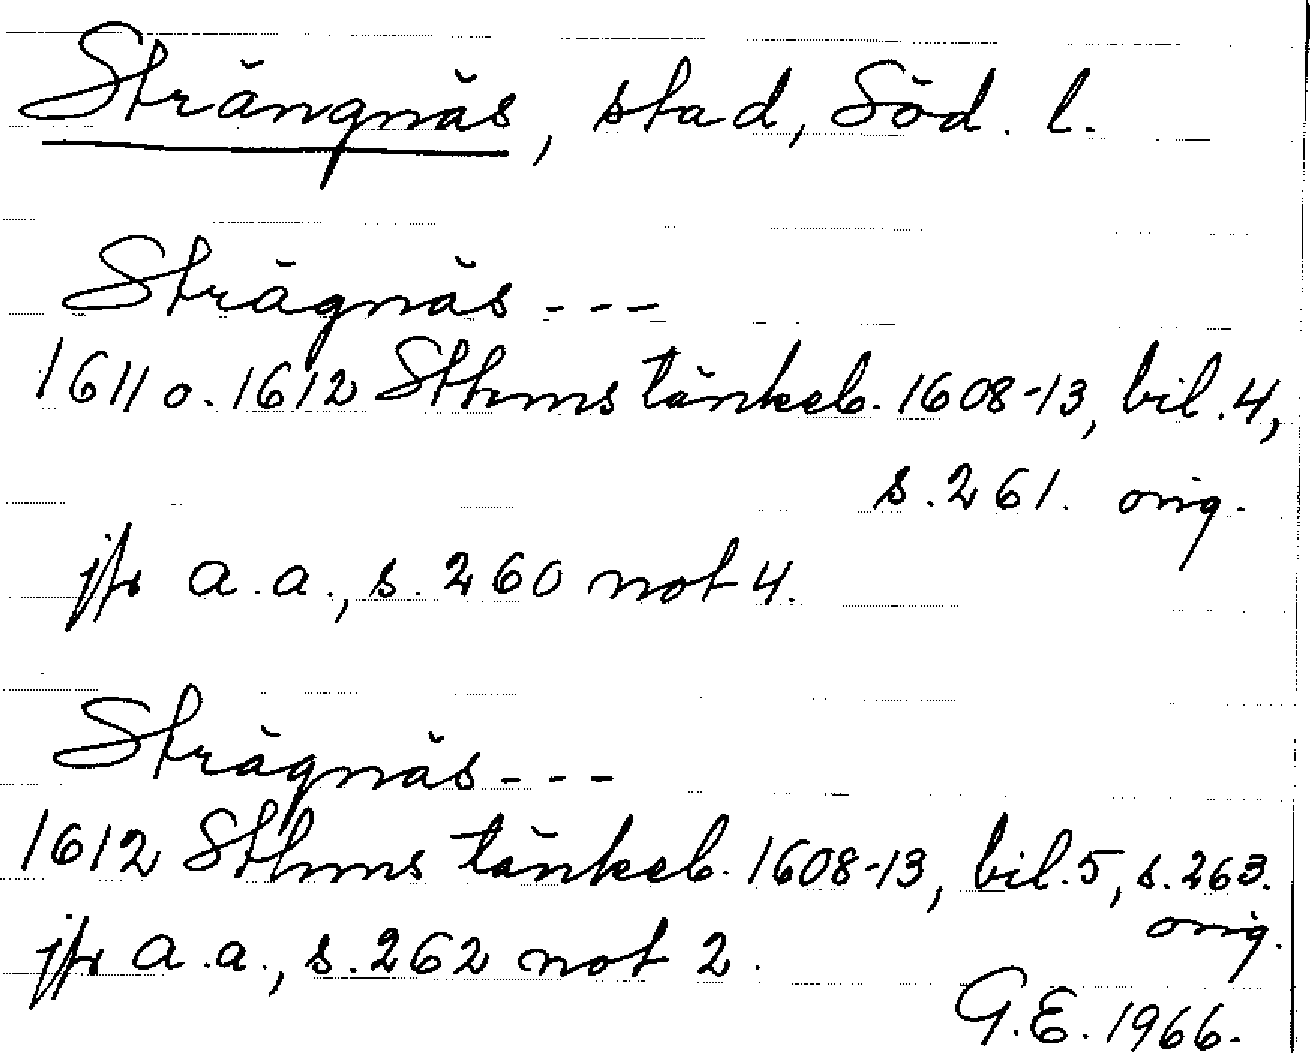 Strängnäs, stad, Söd. l.
Strägnäs - - -
1611 o. 1612 Sthms tänkeb. 1608-13, bil. 4,
s. 261. orig.
jfr a.a., s. 260 not 4.
Strägnäs - - -
1612 Sthms tänkeb. 1608-13, bil. 5, s. 263.
orig.
jfr a.a., s. 262 not 2.
G.E. 1966.